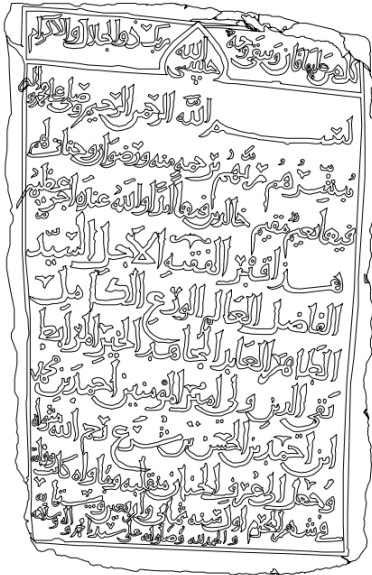 كل من عليها فان ويبقى وجه ربك ذو الجلال والاكرام
الله حسبي
بسم الله الرحمن الرحيم وصلى الله على محمد
يبشرهم ربهم برحمة منه ورضوان وجنات لهم
فيها نعيم مقيم خالدين فيها ابدا ان الله عنده اجر عظيم
هذا قبر الفقيه الاجل السيد
الفاضل العالم الورع الكامل
الطاهر العابد المجاهد الخير المرابط
تقي الدين ولي امير المؤمنين احمد بن محمد
ابن احمد بن الحسن بن رحم الله مثواه
وجعل اعلى غرف الجنان منقلبه وماواه كان وفاته
في شهر المحرم اول سنة ثماني واربعين وستمائة
والحمد لله وصلواته على سيدنا محمد واله وسلم